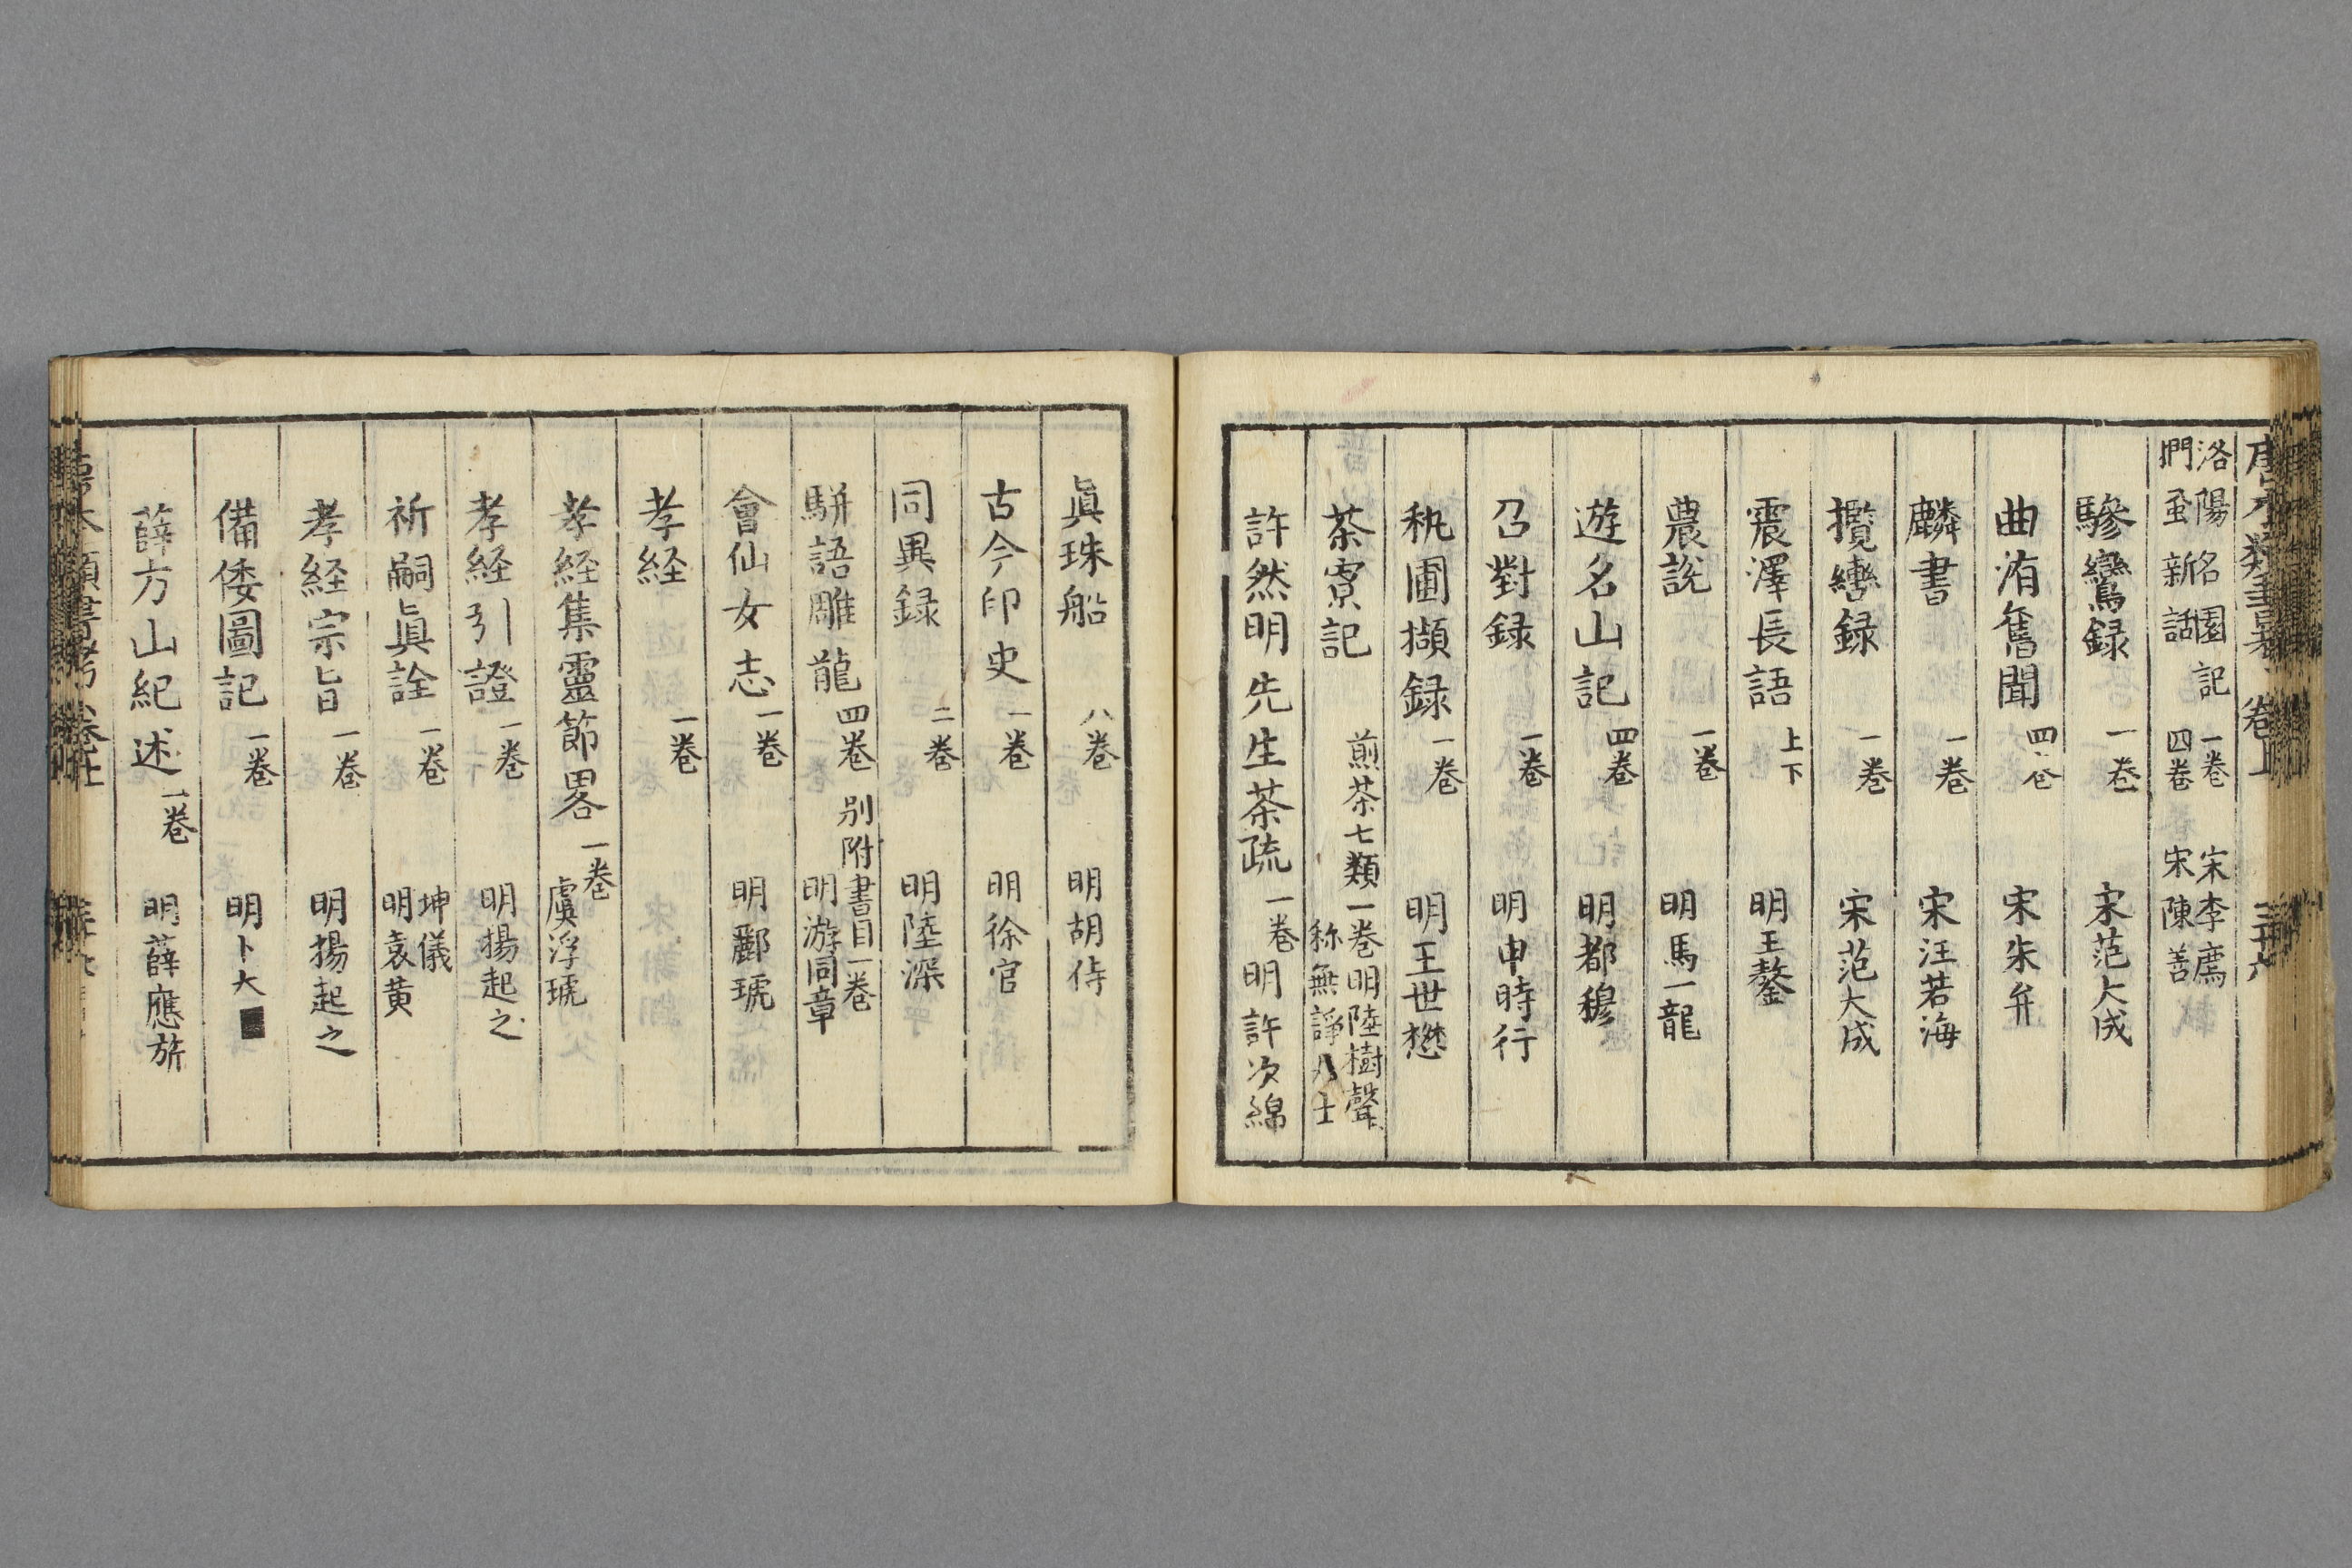 唐本類書考 卷上 三十六
洛陽名園記 一卷 宋李廌
捫虱新話 四卷 宋陳善
驂鸞録 一卷 宋范大成
曲洧舊聞 四卷 宋朱弁
麟書 一卷 宋汪若海
攬轡録 一卷 宋范大成
震澤長語 上下 明王鏊
農説 一卷 明馬一龍
遊名山記 四卷 明都穆
召對録 一卷 明申時行
秇圃擷録 一卷 明王世懋
茶寮記 煎茶七類一卷明陸樹聲
称無諍居士
許然明先生茶疏 一卷 明許次綿
眞珠船 八卷 明胡侍
古今印史 一卷 明徐官
同異録 二卷 明陸深
駢語雕龍 四卷 別附書目一卷
明游同章
會仙女志 一卷 明酈琥
孝経 一卷
孝経集靈節畧 一卷
虞浮琥
孝経引證 一卷 明揚起之
祈嗣眞詮 一卷 坤儀
明袁黄
孝経宗旨 一卷 明揚起之
備倭圖記 一卷 明卜大
薛方山紀述 一卷 明薛應旂